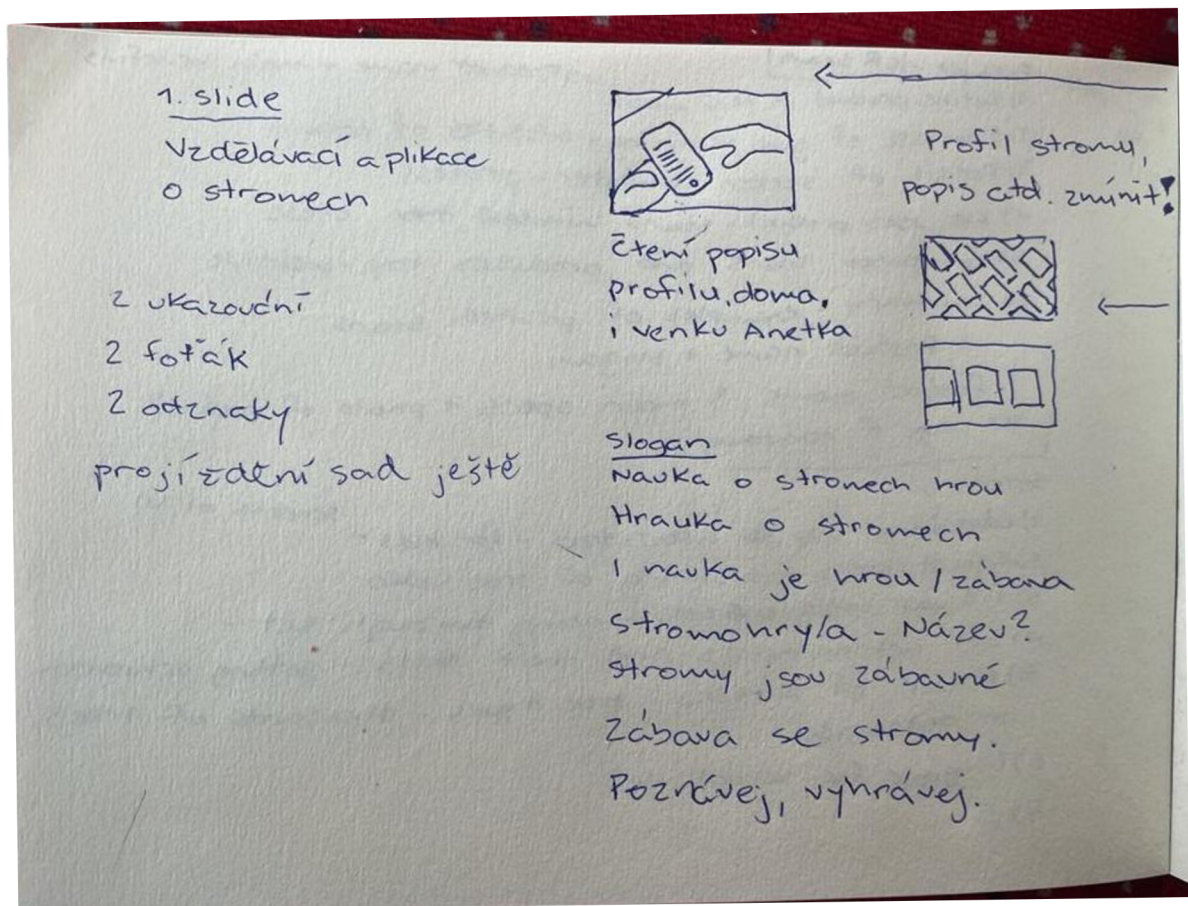 1. slide
Vzdělávací aplikace
o stromech
2 ukazování
2 foťák
2 odznaky
projíždění sad ještě
čtení popisu
profilu, doma,
i venku Anetka
Profil stromu,
popis atd. zmínit!
slogan
Nauka o stromech hrou
Hrauka o stromech
I nauka je hrou / zábava
Stromohry/a - Název?
stromy jsou zábavné
Zábava se stromy.
Poznávej, vyhrávej.